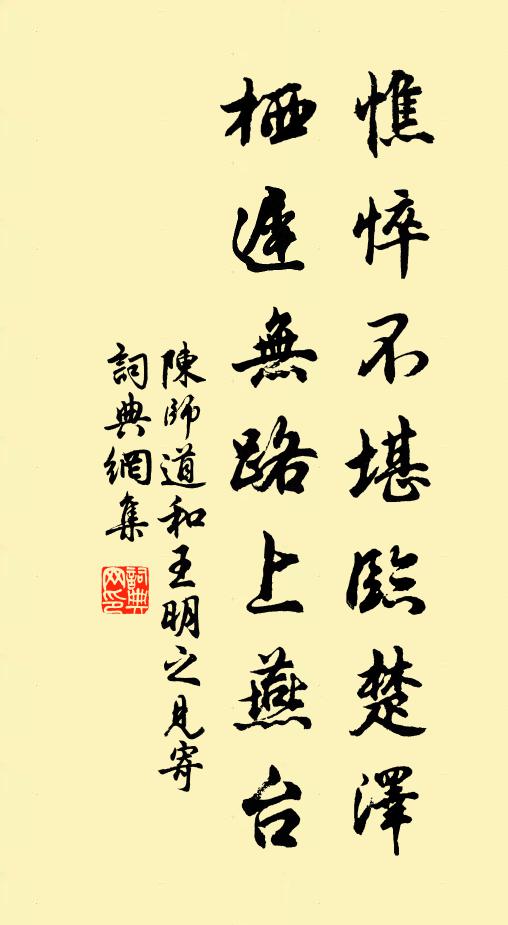 憔悴不堪臨楚澤
栖遲無路上燕台
陳師道和王明之見寄
詞典網集
詞典
网印